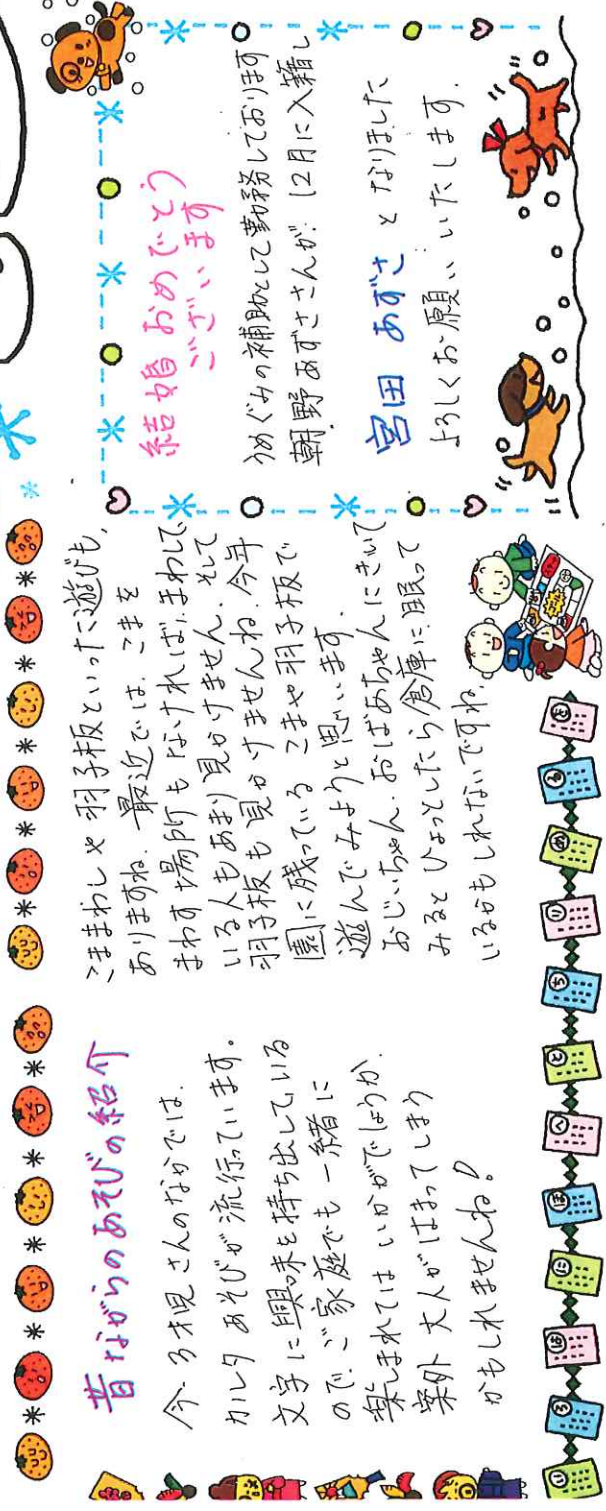 昔ながらのあそびの紹介
今、3才児さんのなかでは、
カルタあそびが流行っています。
文字に興味を持ち出している
ので、ご家庭でも一緒に
楽しまれてはいかがでしょうか。
案外大人がはまってしまう
かもしれませんね!
こままわしや羽子板といったご遊びも、
ありますね。最近では、こまを
まわす場所もなければ、まわして
いる人もあまり見かけません。そして
羽子板も見かけませんね。今年
園に残っているこまや羽子板で
遊んでみようと思います。
おじいちゃん、おばあちゃんにきいて
みるとひょっとしたら倉庫に眠って
いるかもしれないですね。
結婚おめでとう
ございます
うめぐみの補助として勤務しております
朝野あずささんが、12月に入籍し
宮田 あずさ となりました
よろしくお願いいたします。
い ろ は に ほ へ と ち り ぬ る を